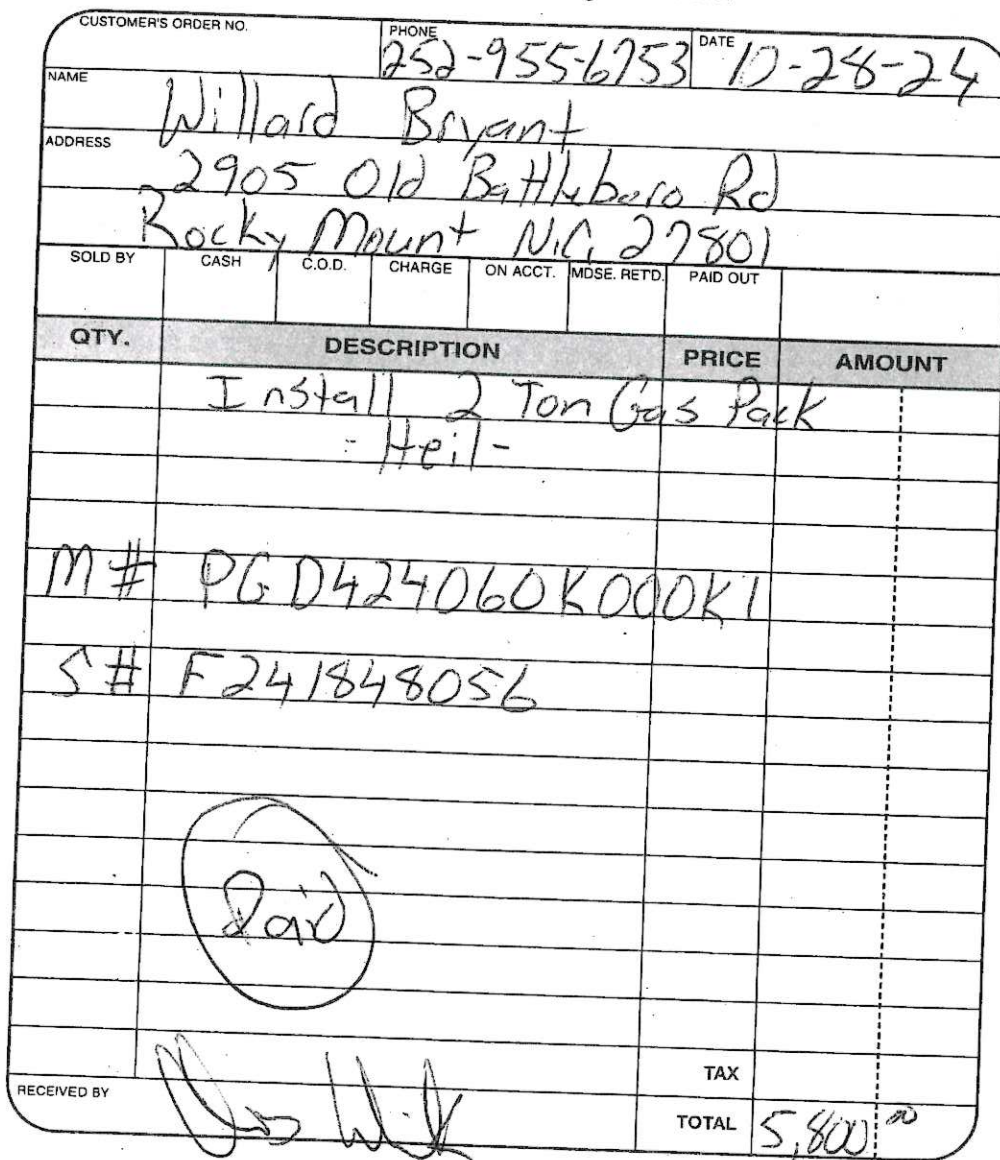 CUSTOMER'S ORDER NO. PHONE 252-955-6753 DATE 10-28-24
NAME Willard Bryant
ADDRESS 2905 Old Battleboro Rd
Rocky Mount N.C. 27801
SOLD BY CASH C.O.D. CHARGE ON ACCT. MDSE. RET'D. PAID OUT
QTY. DESCRIPTION PRICE AMOUNT
Install 2 Ton Gas Pack
- Heil -
M# PGD424060K000K1
S# F241848056
Paid
TAX
RECEIVED BY
TOTAL 5,800 00